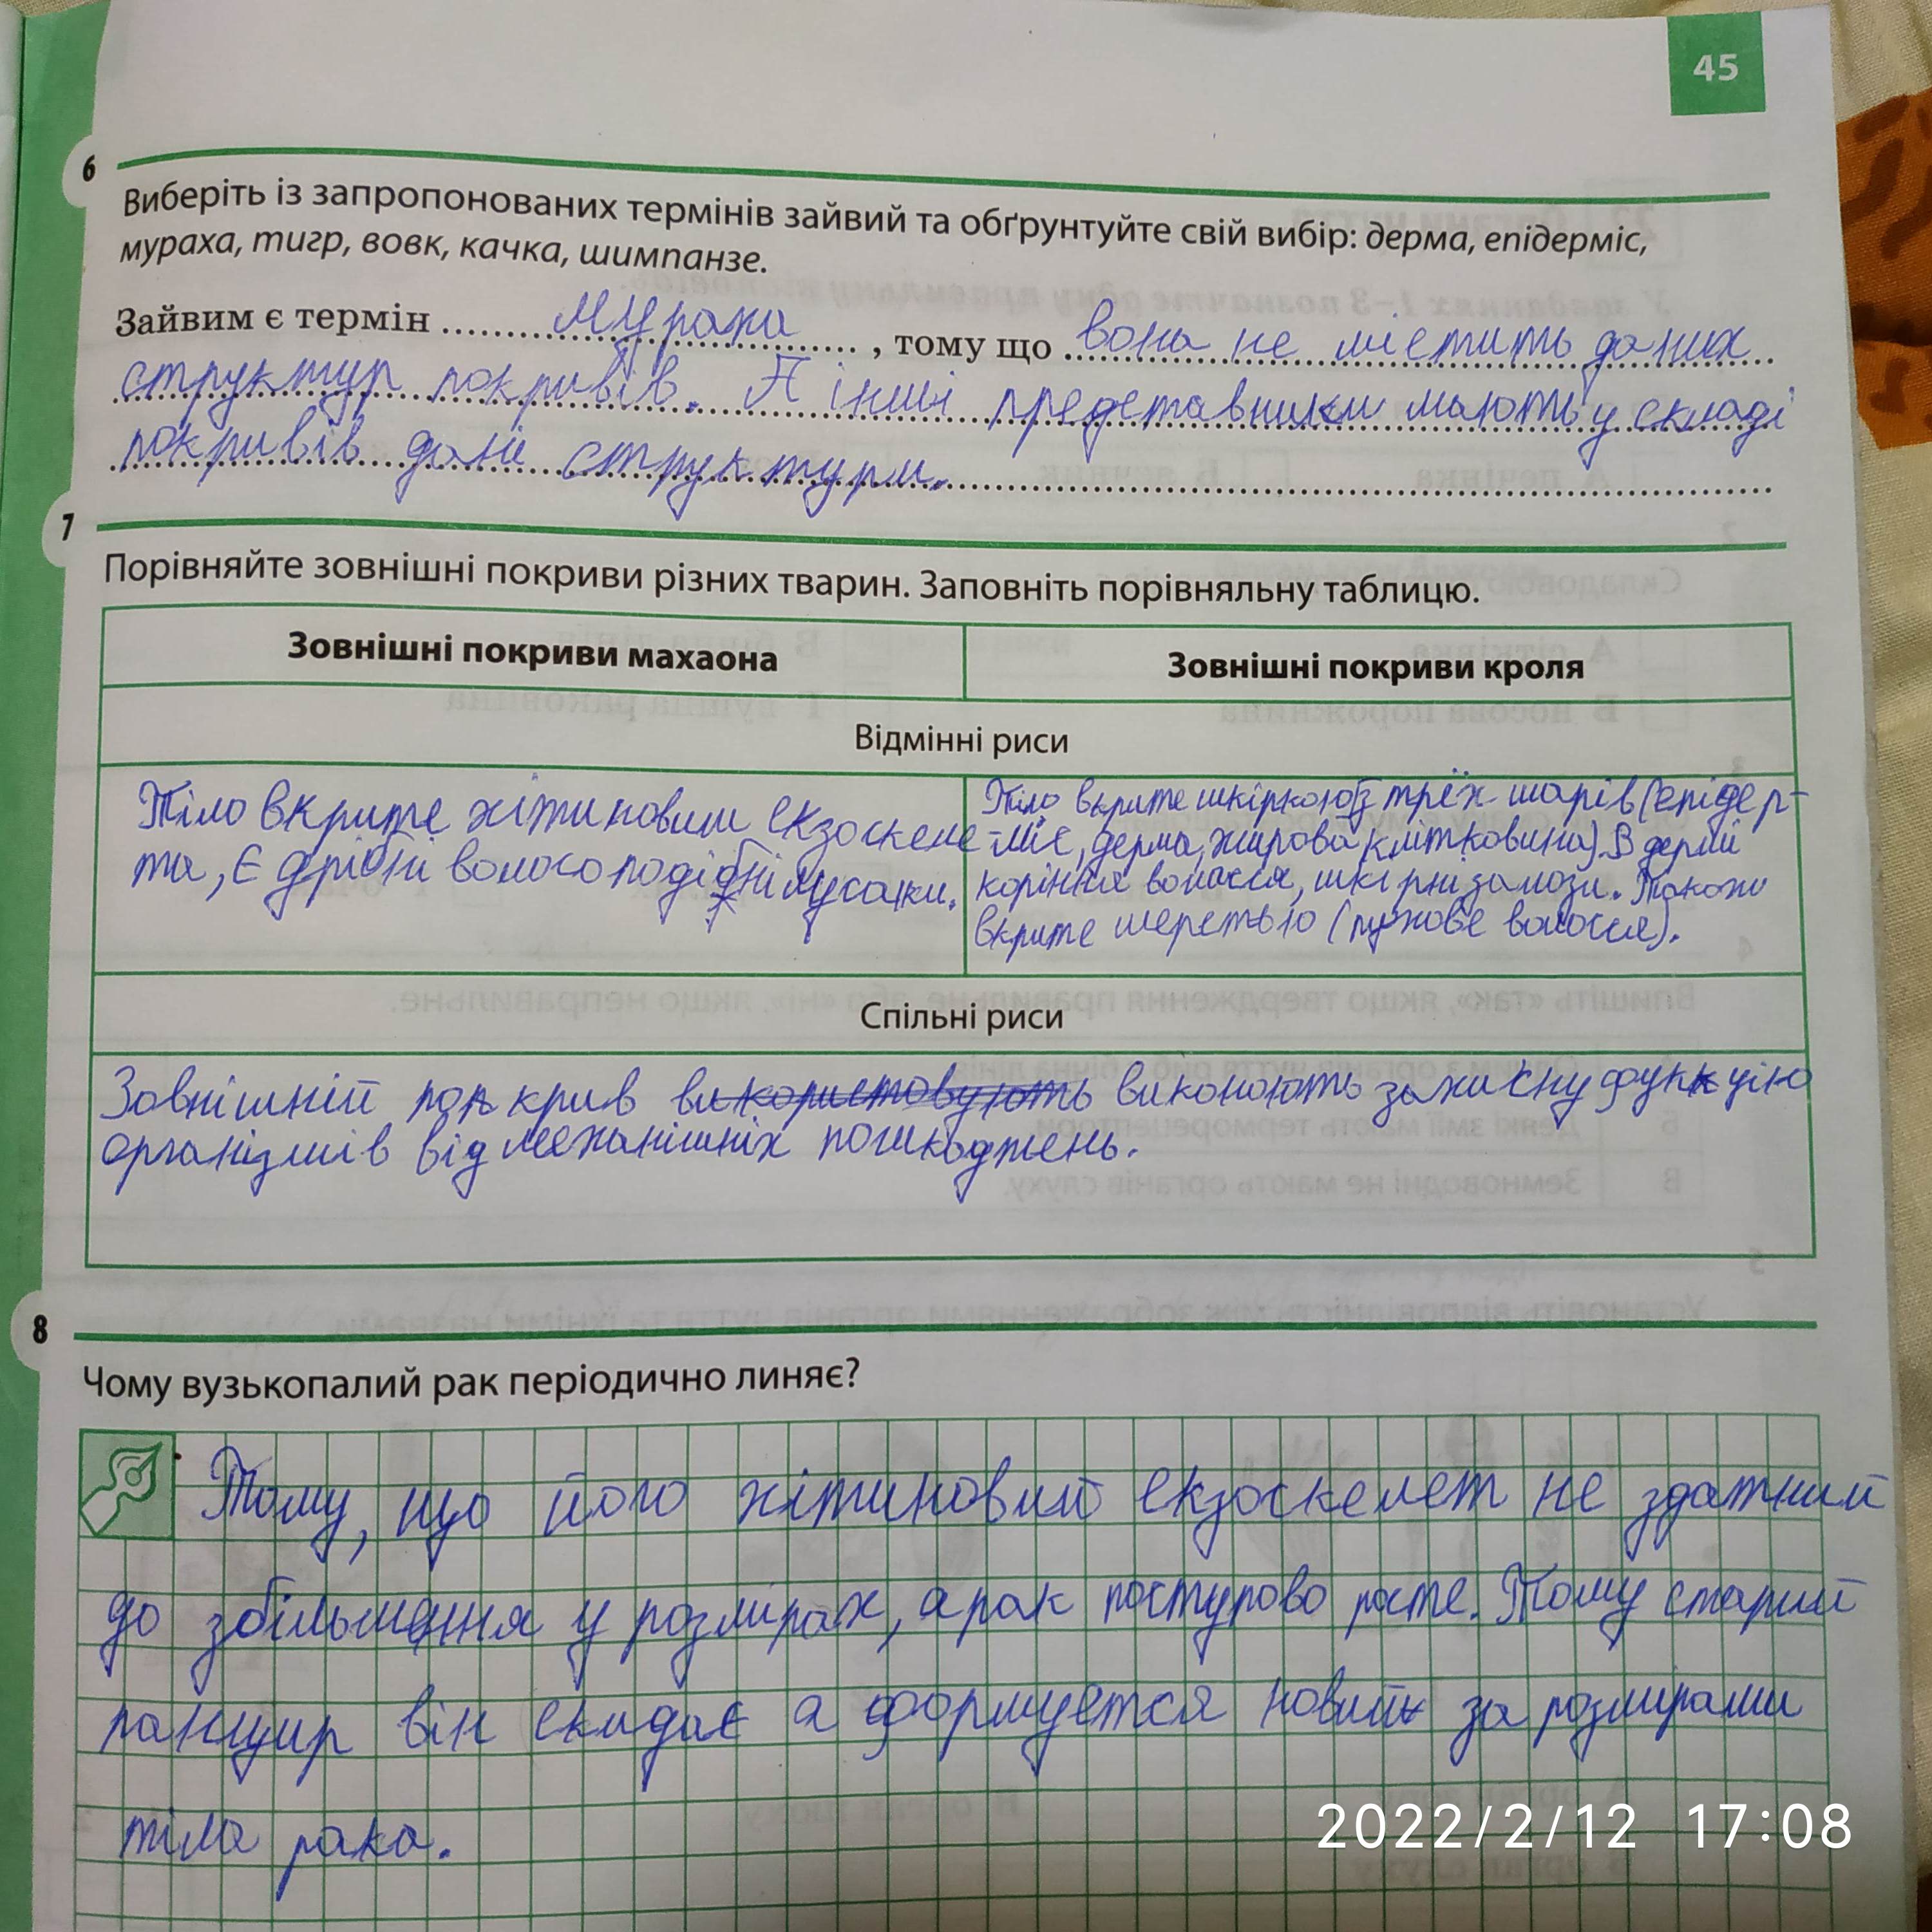 45
6
Виберіть із запропонованих термінів зайвий та обґрунтуйте свій вибір: дерма, епідерміс,
мураха, тигр, вовк, качка, шимпанзе.
Зайвим є термін Мураха, тому що вона не містить даних
структур покривів. А інші представники мають у складі
покривів дані структури.
7
Порівняйте зовнішні покриви різних тварин. Заповніть порівняльну таблицю.
Зовнішні покриви махаона
Зовнішні покриви кроля
Відмінні риси
Тіло вкрите хітиновим екзоскеле-
та, Є дрібні волосоподібні лусочки.
Тіло вкрите шкіркою із трёх шарів (епідер-
міс, дерма, жирова клітковина). В дермі
коріння волосся, шкірні залози. Також
вкрите шерстью (пухове волосся).
Спільні риси
Зовнішній покрив використовують виконають захисну функцію
організмів від механішніх пошкоджень.
8
Чому вузькопалий рак періодично линяє?
Тому, що його хітиновий екзоскелет не здатний
до збільшення у розмірах, а рак поступово росте. Тому старий
панцир він скидає а формуется новий за розмірами
тіла рака.
2022/2/12 17:08